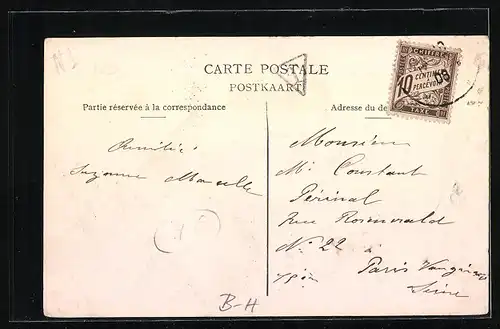 CARTE POSTALE
POSTKAART
Partie réservée à la correspondance
Adresse du de
CHIFFRE
10 CENTIM
PERCEVO
TAXE
08
Amitiés
Suzanne Marcelle
Monsieur
Mr Constant
Périnal
Rue Rosenwald
No 22
Paris Vaugirard
Seine
B-H